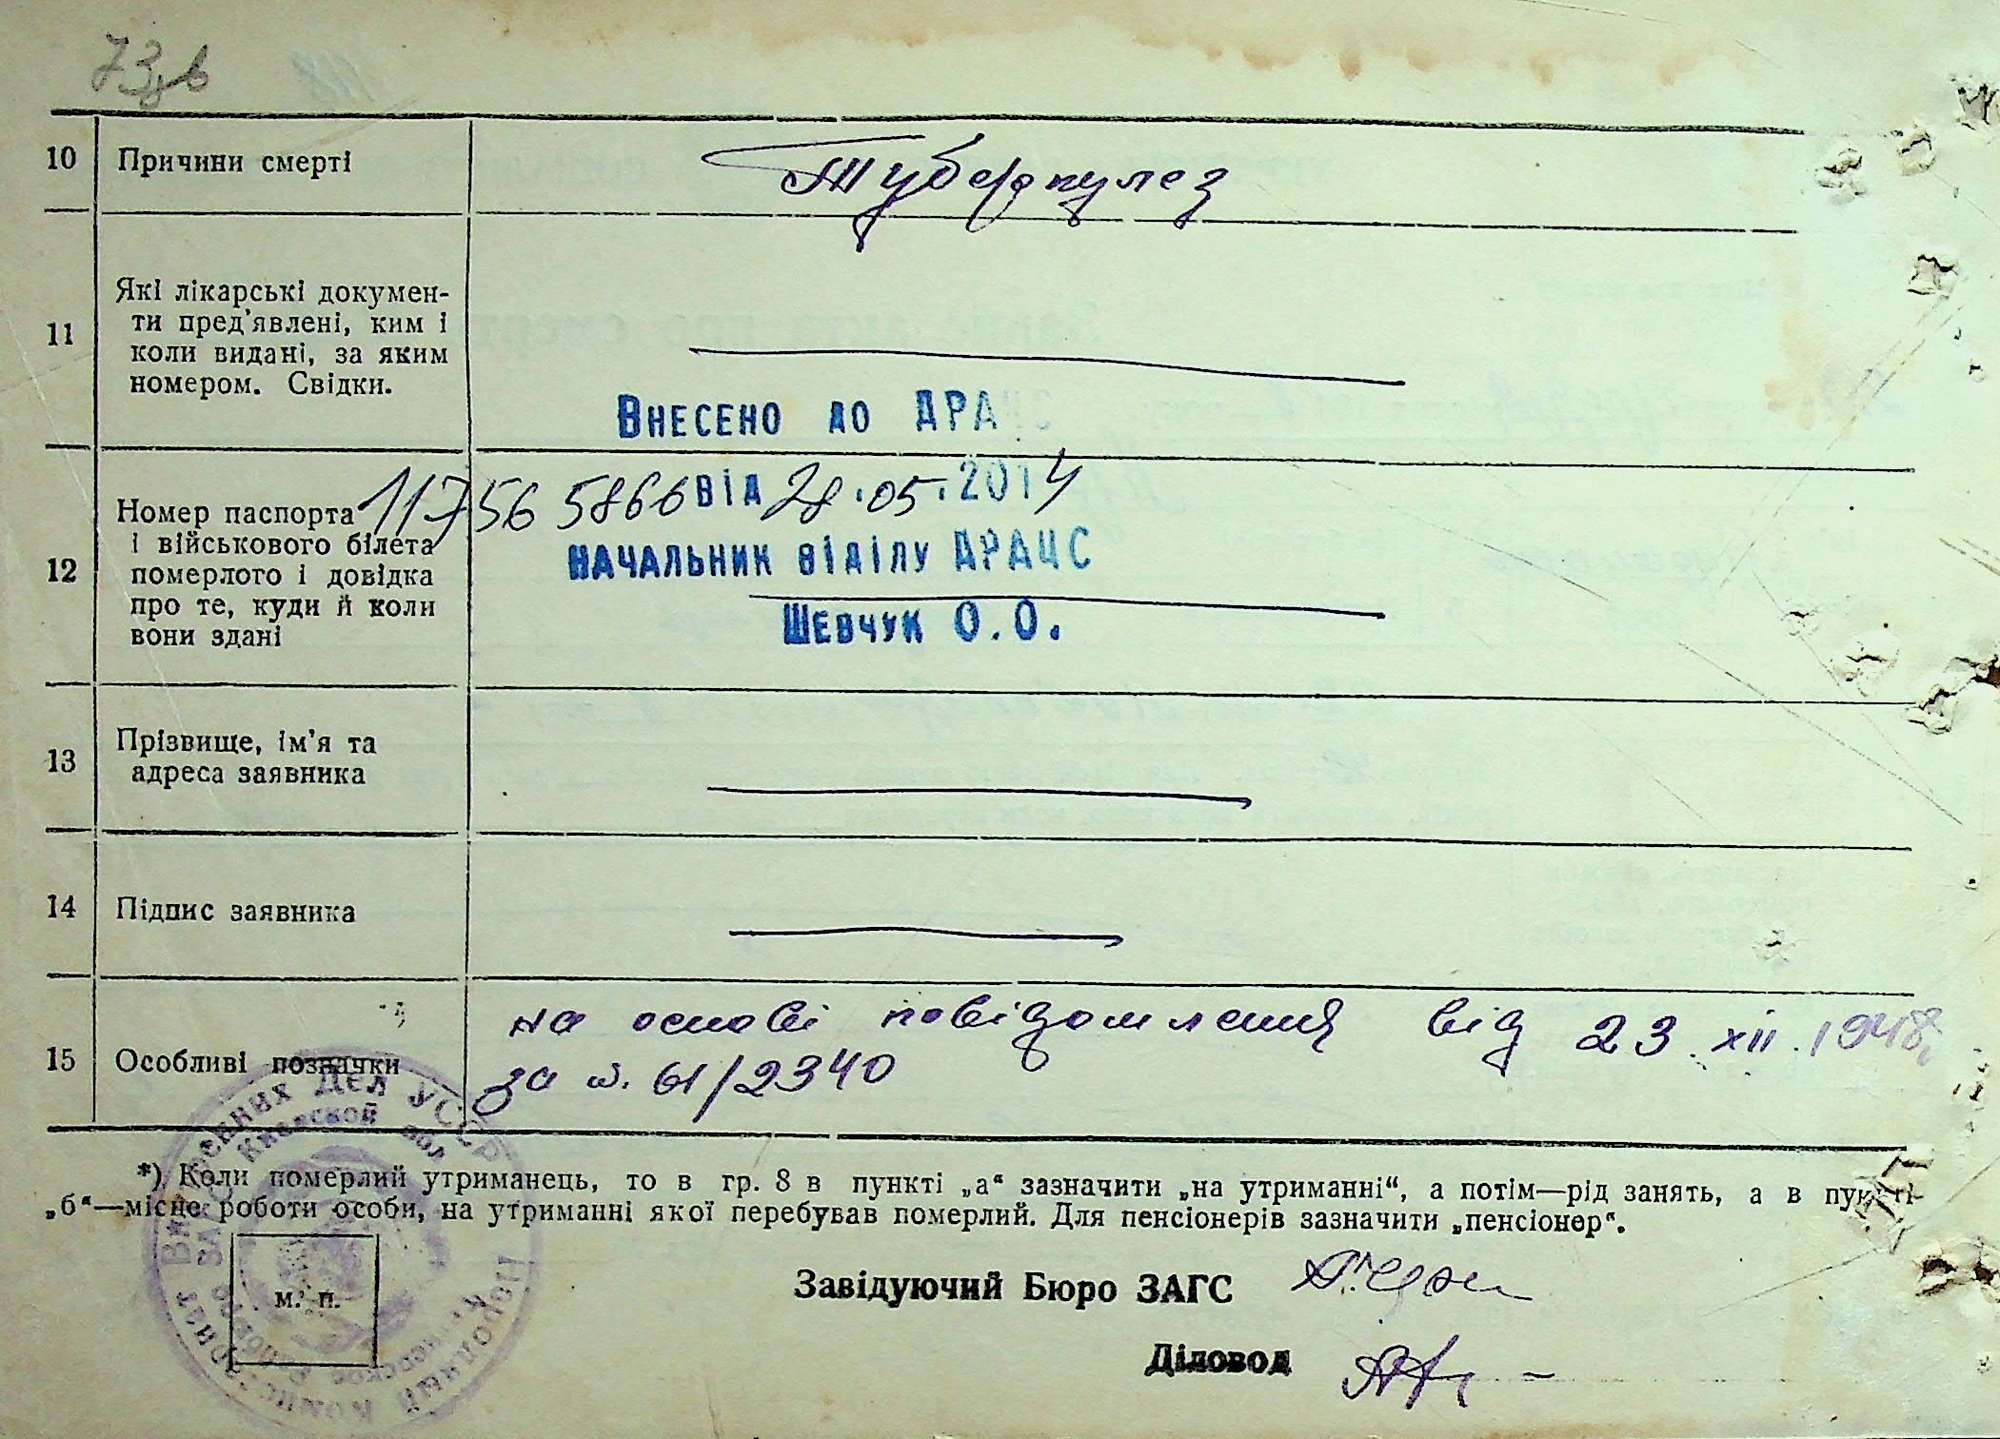 73
10 Причини смерті Туберкулез
11 Які лікарські докумен-
ти пред'явлені, ким і
коли видані, за яким
номером. Свідки.
Внесено до ДРАЦС
1175656866 від 28.05.2014
начальник відділу ДРАЦС
Шевчук О.О.
12 Номер паспорта
і військового білета
померлого і довідка
про те, куди й коли
вони здані
13 Прізвище, ім'я та
адреса заявника
14 Підпис заявника
15 Особливі позначки
на основі повідомлення від 23.XII.1948
за №. 61/2340
*) Коли померлий утриманець, то в гр. 8 в пункті „а“ зазначити „на утриманні“, а потім—рід занять, а в пункті
„б“—місце роботи особи, на утриманні якої перебував померлий. Для пенсіонерів зазначити „пенсіонер“.
м. п.
Завідуючий Бюро ЗАГС
Діловод
Народный Комиссариат Внутренних Дел УССР
Киевской